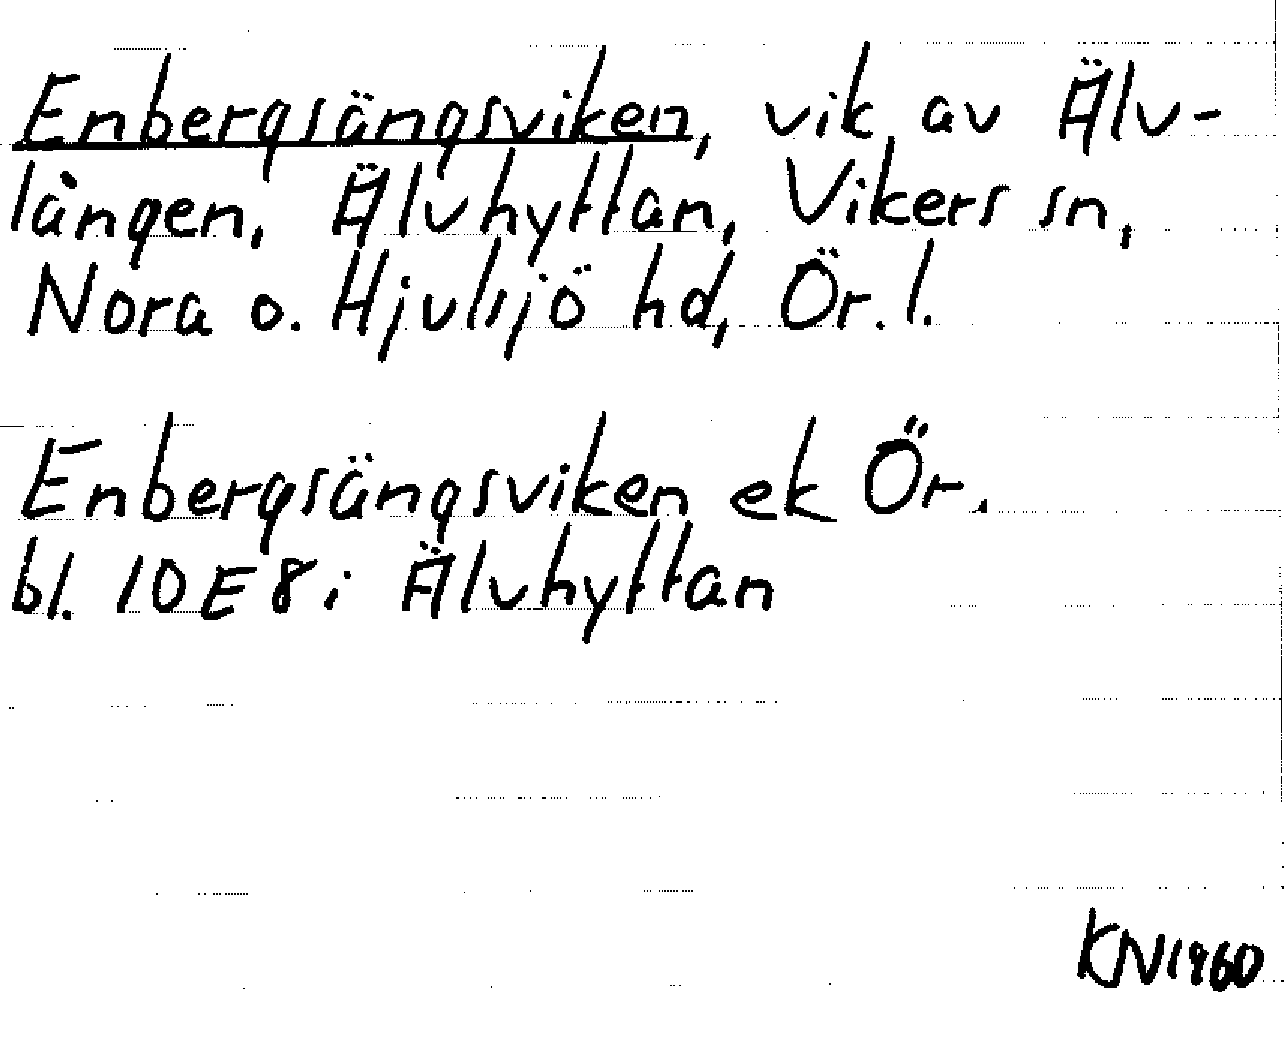 Enbergsängsviken, vik av Älv-
lången, Älvhyttan, Vikers sn,
Nora o. Hjulsjö hd, Ör. l.
Enbergsängsviken ek Ör.
bl. 10E8i Älvhyttan
KN1960